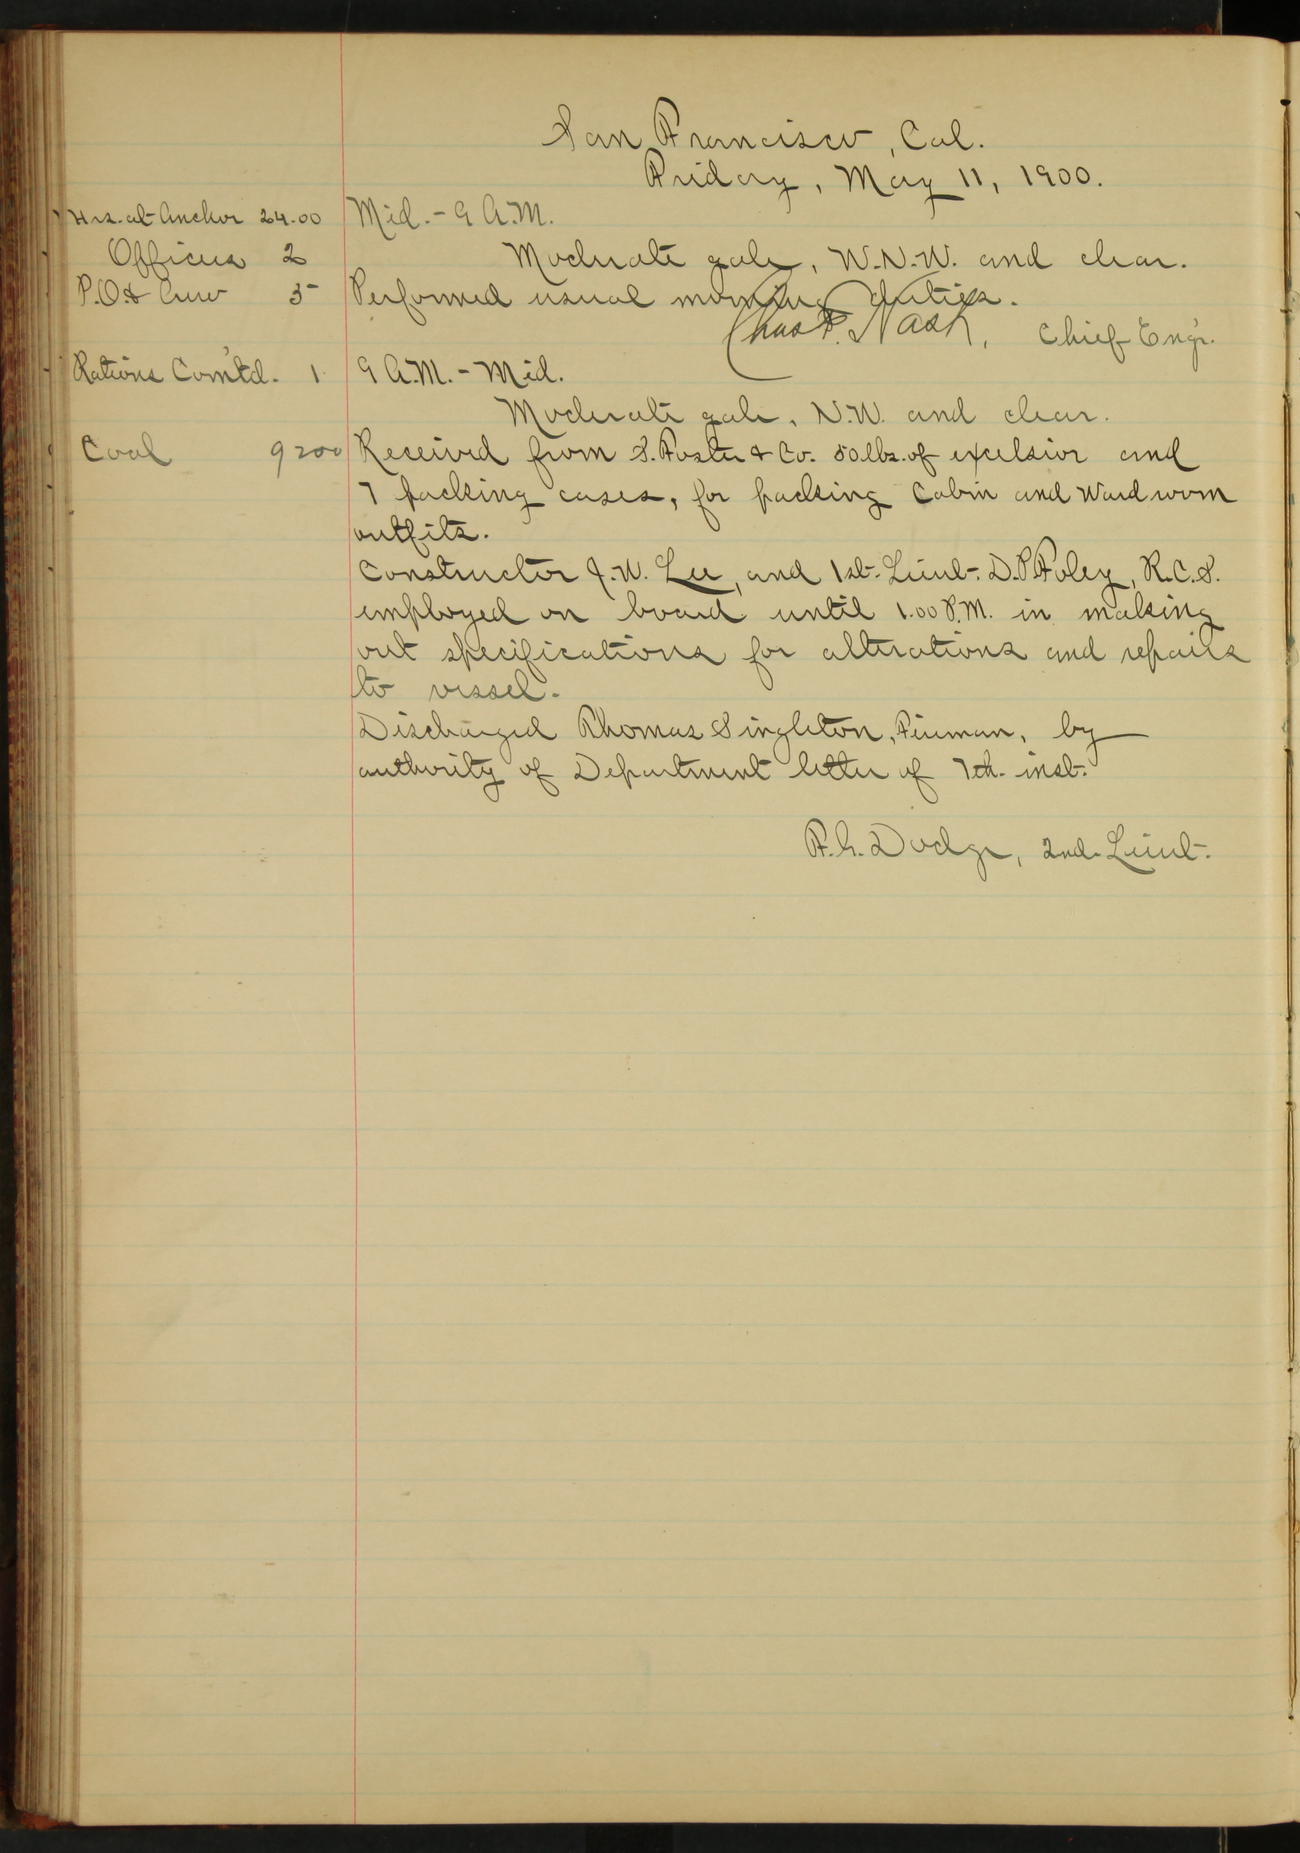 San Francisco, Cal.
Friday, May 11, 1900.
Hrs. at Anchor 24.00
Mid. - 9 A.M.
Officers 2
Moderate gale, W.N.W. and clear.
P.O. & Crew 5
Performed usual morning duties.
Chas. F. Nash, Chief Engr.
Rations Com'td. 1
9 A.M. - Mid.
Moderate gale, N.W. and clear.
Coal 9200
Received from S. Foster & Co. 50 lbs. of excelsior and
7 packing cases, for packing Cabin and Wardroom
outfits.
Constructor J.W. Lee, and 1st. Lieut. D.P. Foley, R.C.S.
employed on board until 1.00 P.M. in making
out specifications for alterations and repairs
to vessel.
Discharged Thomas Singleton, Fireman, by
authority of Department letter of 7th. inst.
F.G. Dodge, 2nd. Lieut.